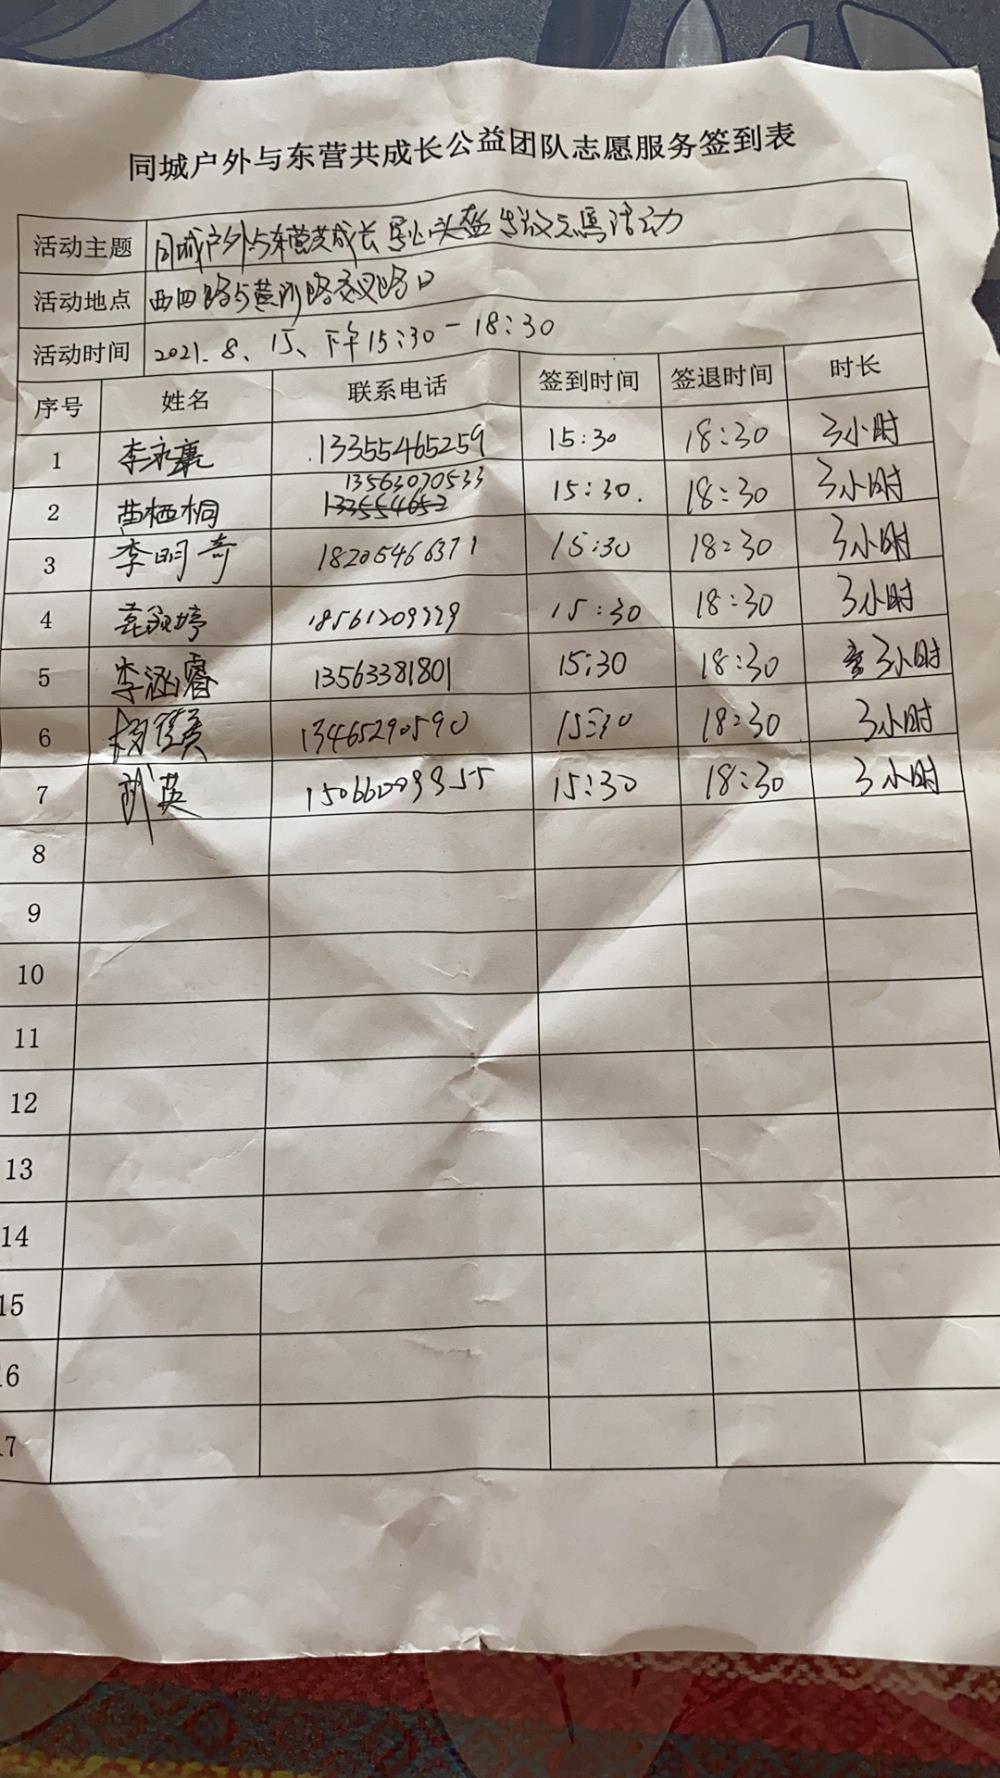 同城户外与东营共成长公益团队志愿服务签到表
活动主题 同城户外与东营共成长 头盔 活动
活动地点 西四路与黄河路交叉路口
活动时间 2021.8、15、下午15:30-18:30
序号 姓名 联系电话 签到时间 签退时间 时长
1 李永襄 13355465259 15:30 18:30 3小时
13563070533
2 苗栖桐 133554652 15:30. 18:30 3小时
3 李明奇 18205466371 15:30 18:30 3小时
4 18561209229 15:30 18:30 3小时
5 李涵睿 13563381801 15:30 18:30 3小时
6 13465290590 15:30 18:30 3小时
7 英 15:30 18:30 3小时
8
9
10
11
12
13
14
15
16
17